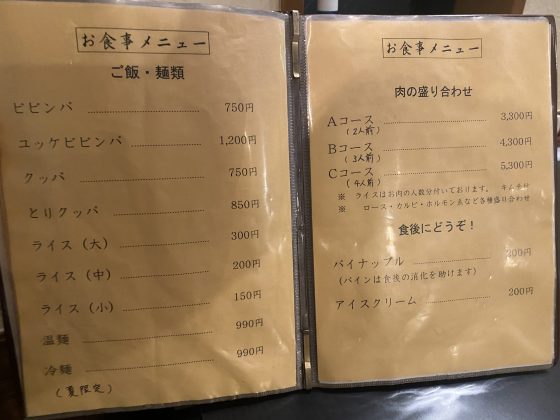 お食事メニュー
ご飯・麺類
ビビンバ 750円
ユッケビビンバ 1,200円
クッパ 750円
とりクッパ 850円
ライス（大） 300円
ライス（中） 200円
ライス（小） 150円
温麺 990円
冷麺 990円
（夏限定）
お食事メニュー
肉の盛り合わせ
Aコース 3,300円
（2人前）
Bコース 4,300円
（3人前）
Cコース 5,300円
（4人前）
※ ライスはお肉の人数分付いております。 キムチ付
※ ロース・カルビ・ホルモンゑなど各種盛り合わせ
食後にどうぞ！
パイナップル 200円
（パインは食後の消化を助けます）
アイスクリーム 200円